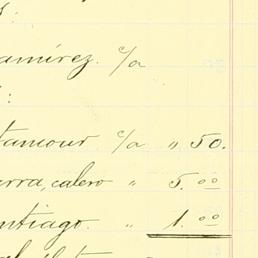 amírez. c/a
tamour c/a " 50.
erra, calero " 5.00
ntiago. " 1.00